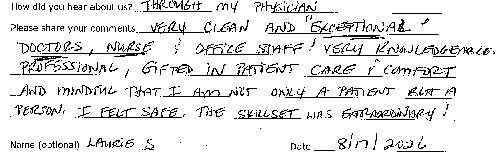 How did you hear about us? THROUGH MY PHYSICIAN
Please share your comments. VERY CLEAN AND "EXCEPTIONAL"
DOCTORS, NURSE & OFFICE STAFF! VERY KNOWLEDGEABLE,
PROFESSIONAL, GIFTED IN PATIENT CARE & COMFORT
AND MINDFUL THAT I AM NOT ONLY A PATIENT BUT A
PERSON. I FELT SAFE. THE SKILLSET WAS EXTRAORDINARY!
Name (optional) LAURIE S Date 8/17/2026